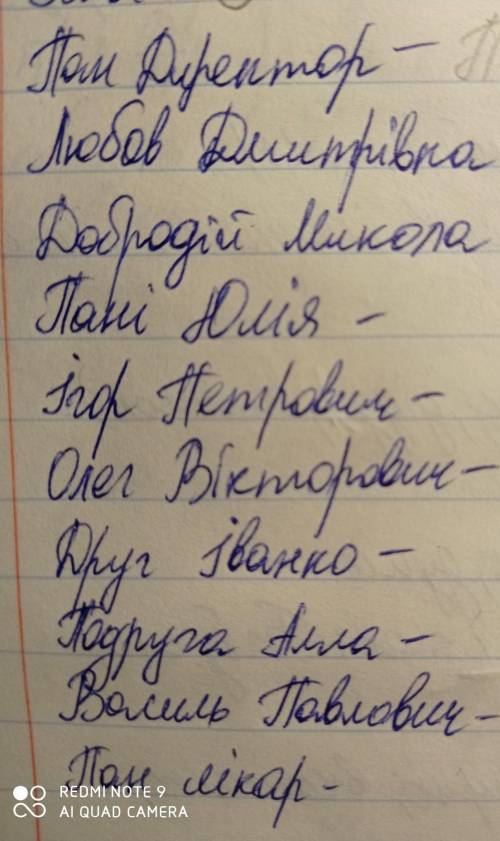 Пан Директор –
Любов Дмитрівна
Добродій Микола
Пані Юлія –
Ігор Петрович –
Олег Вікторович –
Друг Іванко –
Подруга Алла –
Василь Павлович –
Пан лікар –
REDMI NOTE 9
AI QUAD CAMERA